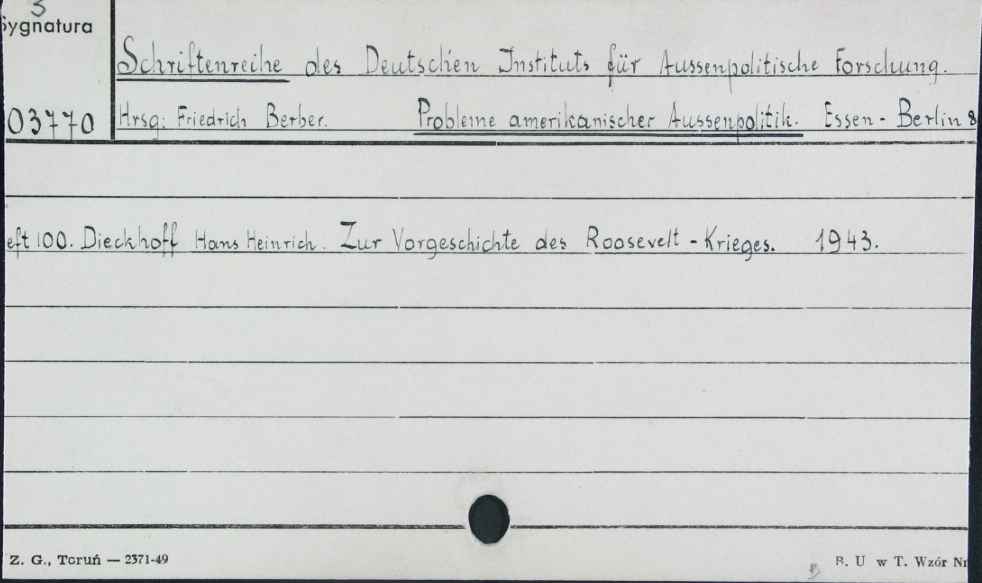 3
Sygnatura
Schriftenreihe des Deutschen Instituts für Aussenpolitische Forschung.
03770
Hrsg: Friedrich Berber. Probleme amerikanischer Aussenpolitik. Essen - Berlin 8
eft 100. Dieckhoff Hans Heinrich. Zur Vorgeschichte des Roosevelt - Krieges. 1943.
Z. G., Toruń — 2371-49
B. U w T. Wzór Nr